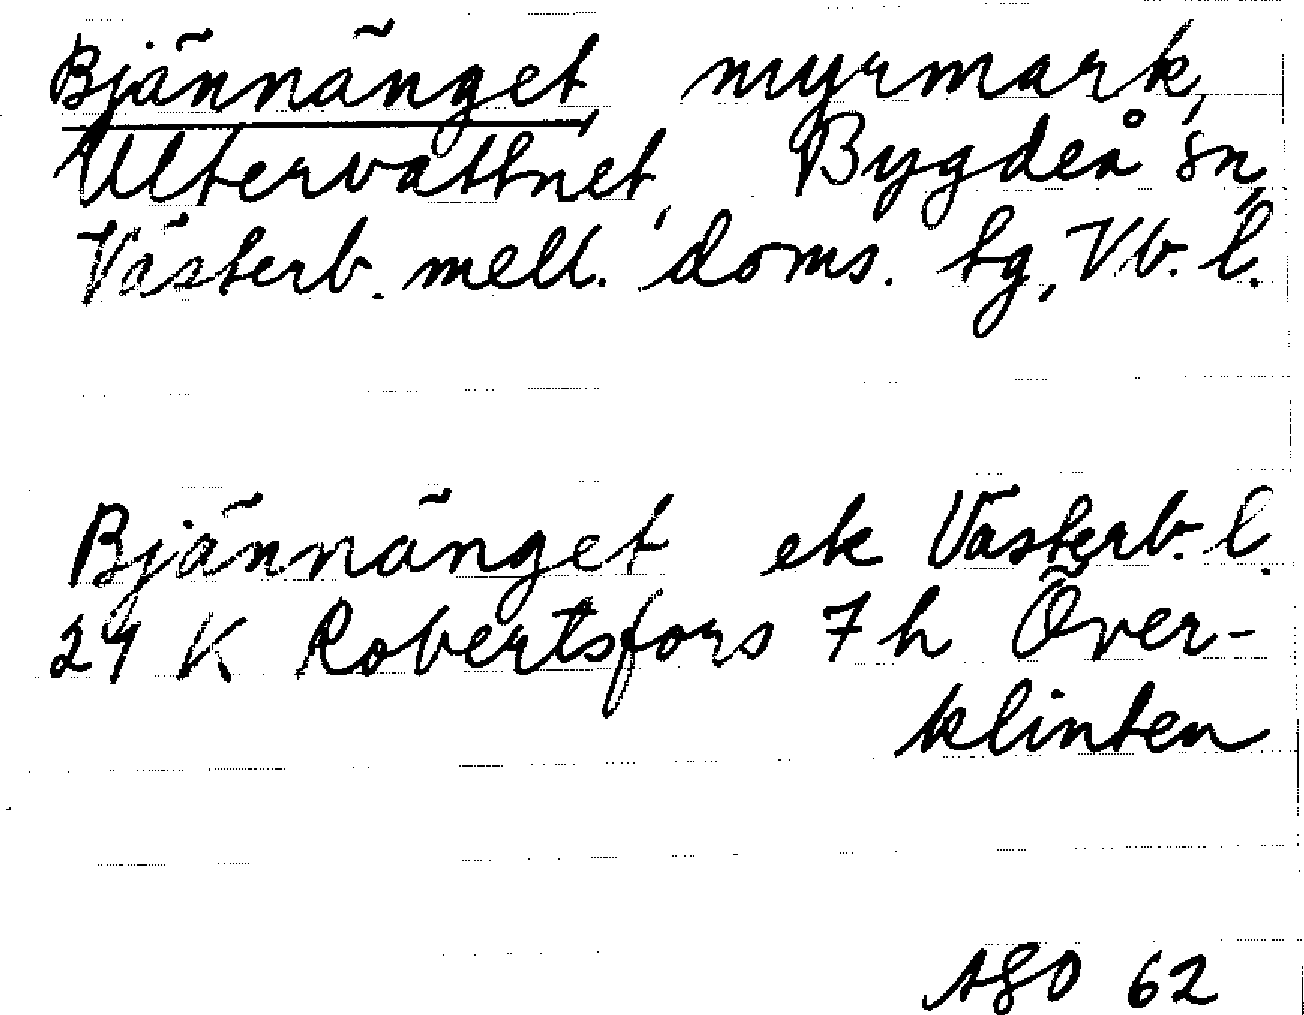 Bjännänget, myrmark,
Ultervattnet, Bygdeå sn,
Västerb. mell. doms. tg, Vb. l.
Bjännänget ek Västerb. l.
21 K Robertsfors 7 h Över-
klinten
ASO 62